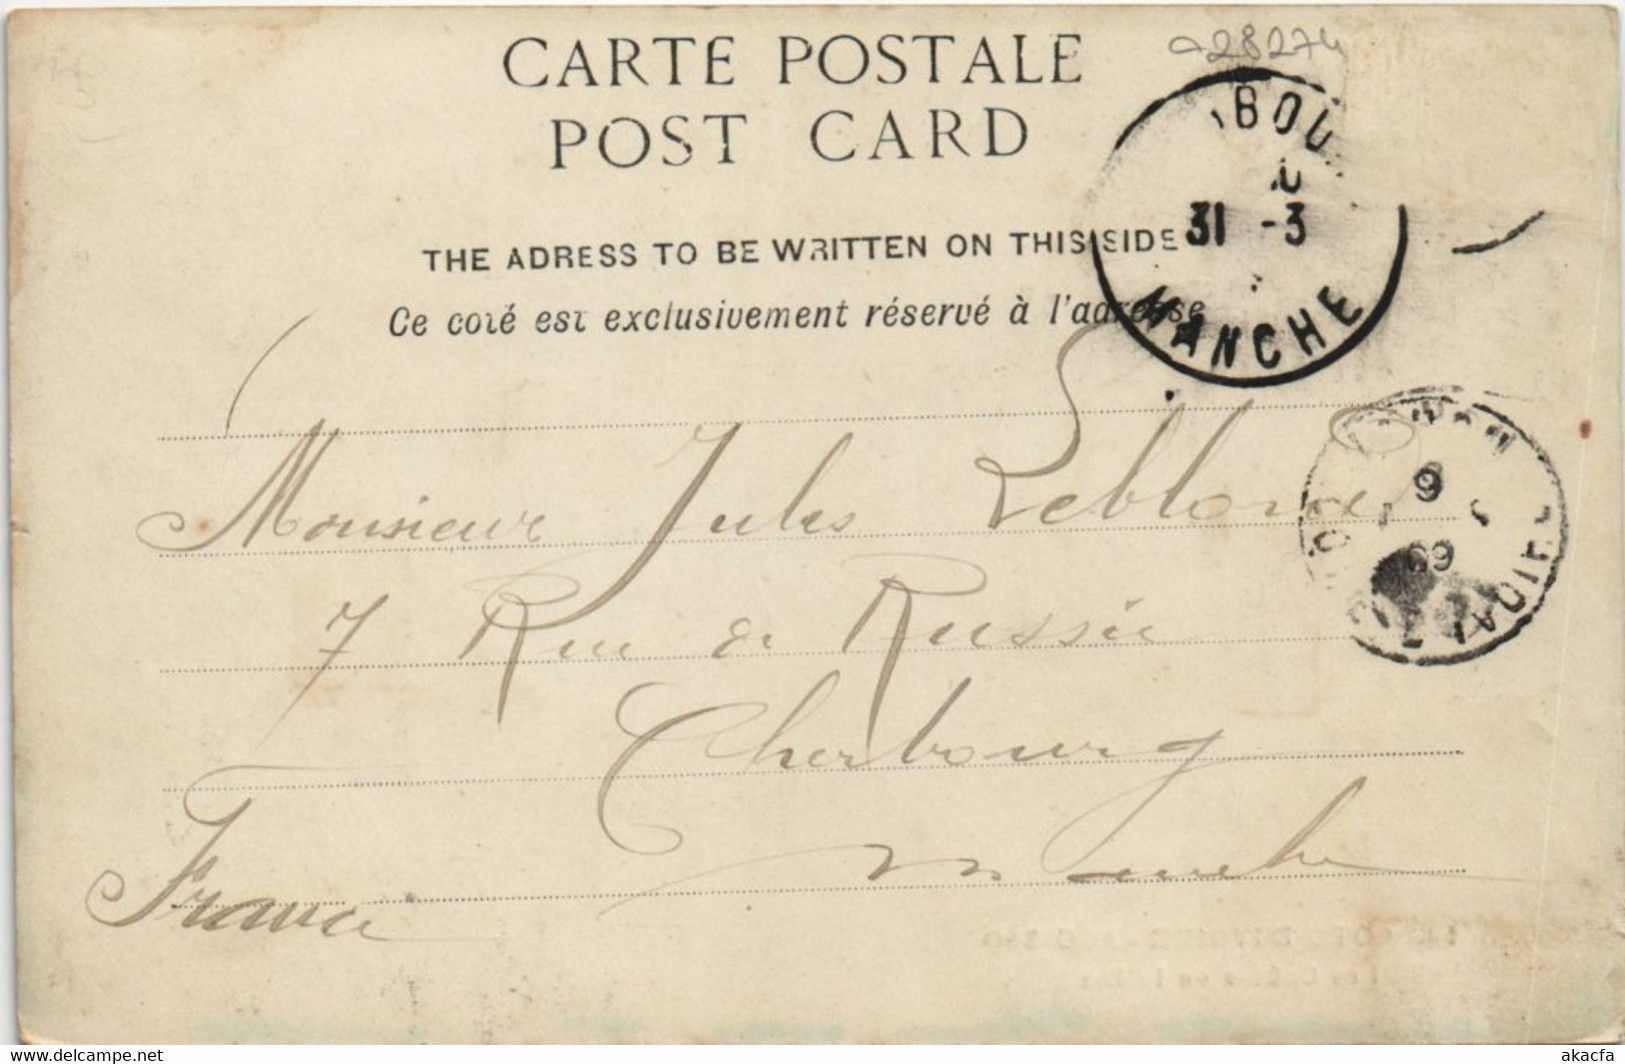 28274
CARTE POSTALE
POST CARD
BOU
31 -3
MANCHE
THE ADRESS TO BE WRITTEN ON THIS SIDE
Ce coté est exclusivement réservé à l'adresse
Monsieur Jules Leblond
7 Rue de Russie
Cherbourg
Manche
France
6
09
IVOIRE
delcampe.net
akacfa